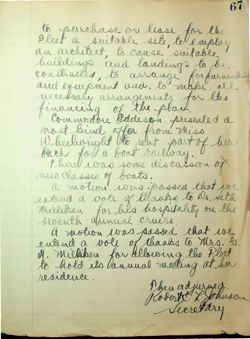 67
to purchase or lease for the
Fleet a suitable site, to employ
an architect, to cause suitable
buildings and landings to be
constructed, to arrange for furnishing
and equipment and to make all
necessary arrangements for the
financing of the plan.
Commodore Eddeson presented a
most kind offer from Miss
Wheelwright to rent part of her
back for a boat railway.
There was some discussion of
new classes of boats.
A motion was passed that we
extend a vote of thanks to Dr. Seth
Milliken for his hospitality on the
Seventh Annual Cruise.
A motion was passed that we
extend a vote of thanks to Mrs. G.
H. Milliken for allowing the Fleet
to hold its annual meeting at her
residence.
Then adjourned
Robert L Johnson
Secretary